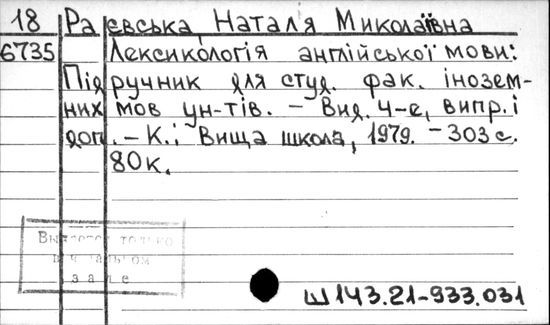 18 Раєвська, Наталя Миколаївна
6735 Лексикологія англійської мови:
Підручник для студ. фак. інозем-
них мов ун-тів. – Вид. 4-е, випр. і
доп. – К.: Вища школа, 1979. – 303 с.
80к.
Выдается только
в читальном
зале
Ш143.21-933.031